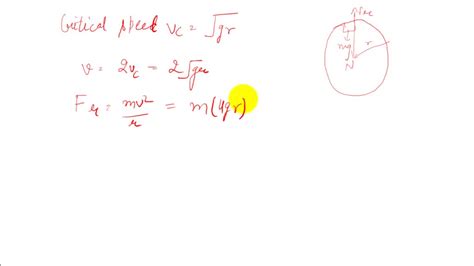 Critical speed v_c = √gr
v = 2v_c = 2√gr
F_r = mv²/r = m(4gr)
mg
r
N